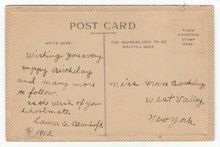 POST CARD
WRITE HERE
THE ADDRESS ONLY TO BE
WRITTEN HERE
PLACE
POSTAGE
STAMP
HERE
Wishing you a very
Happy Birthday
and many more
to follow,
as is wish of your
schoolmate
Laura E.
1912
Miss Grace
West Valley,
New York.